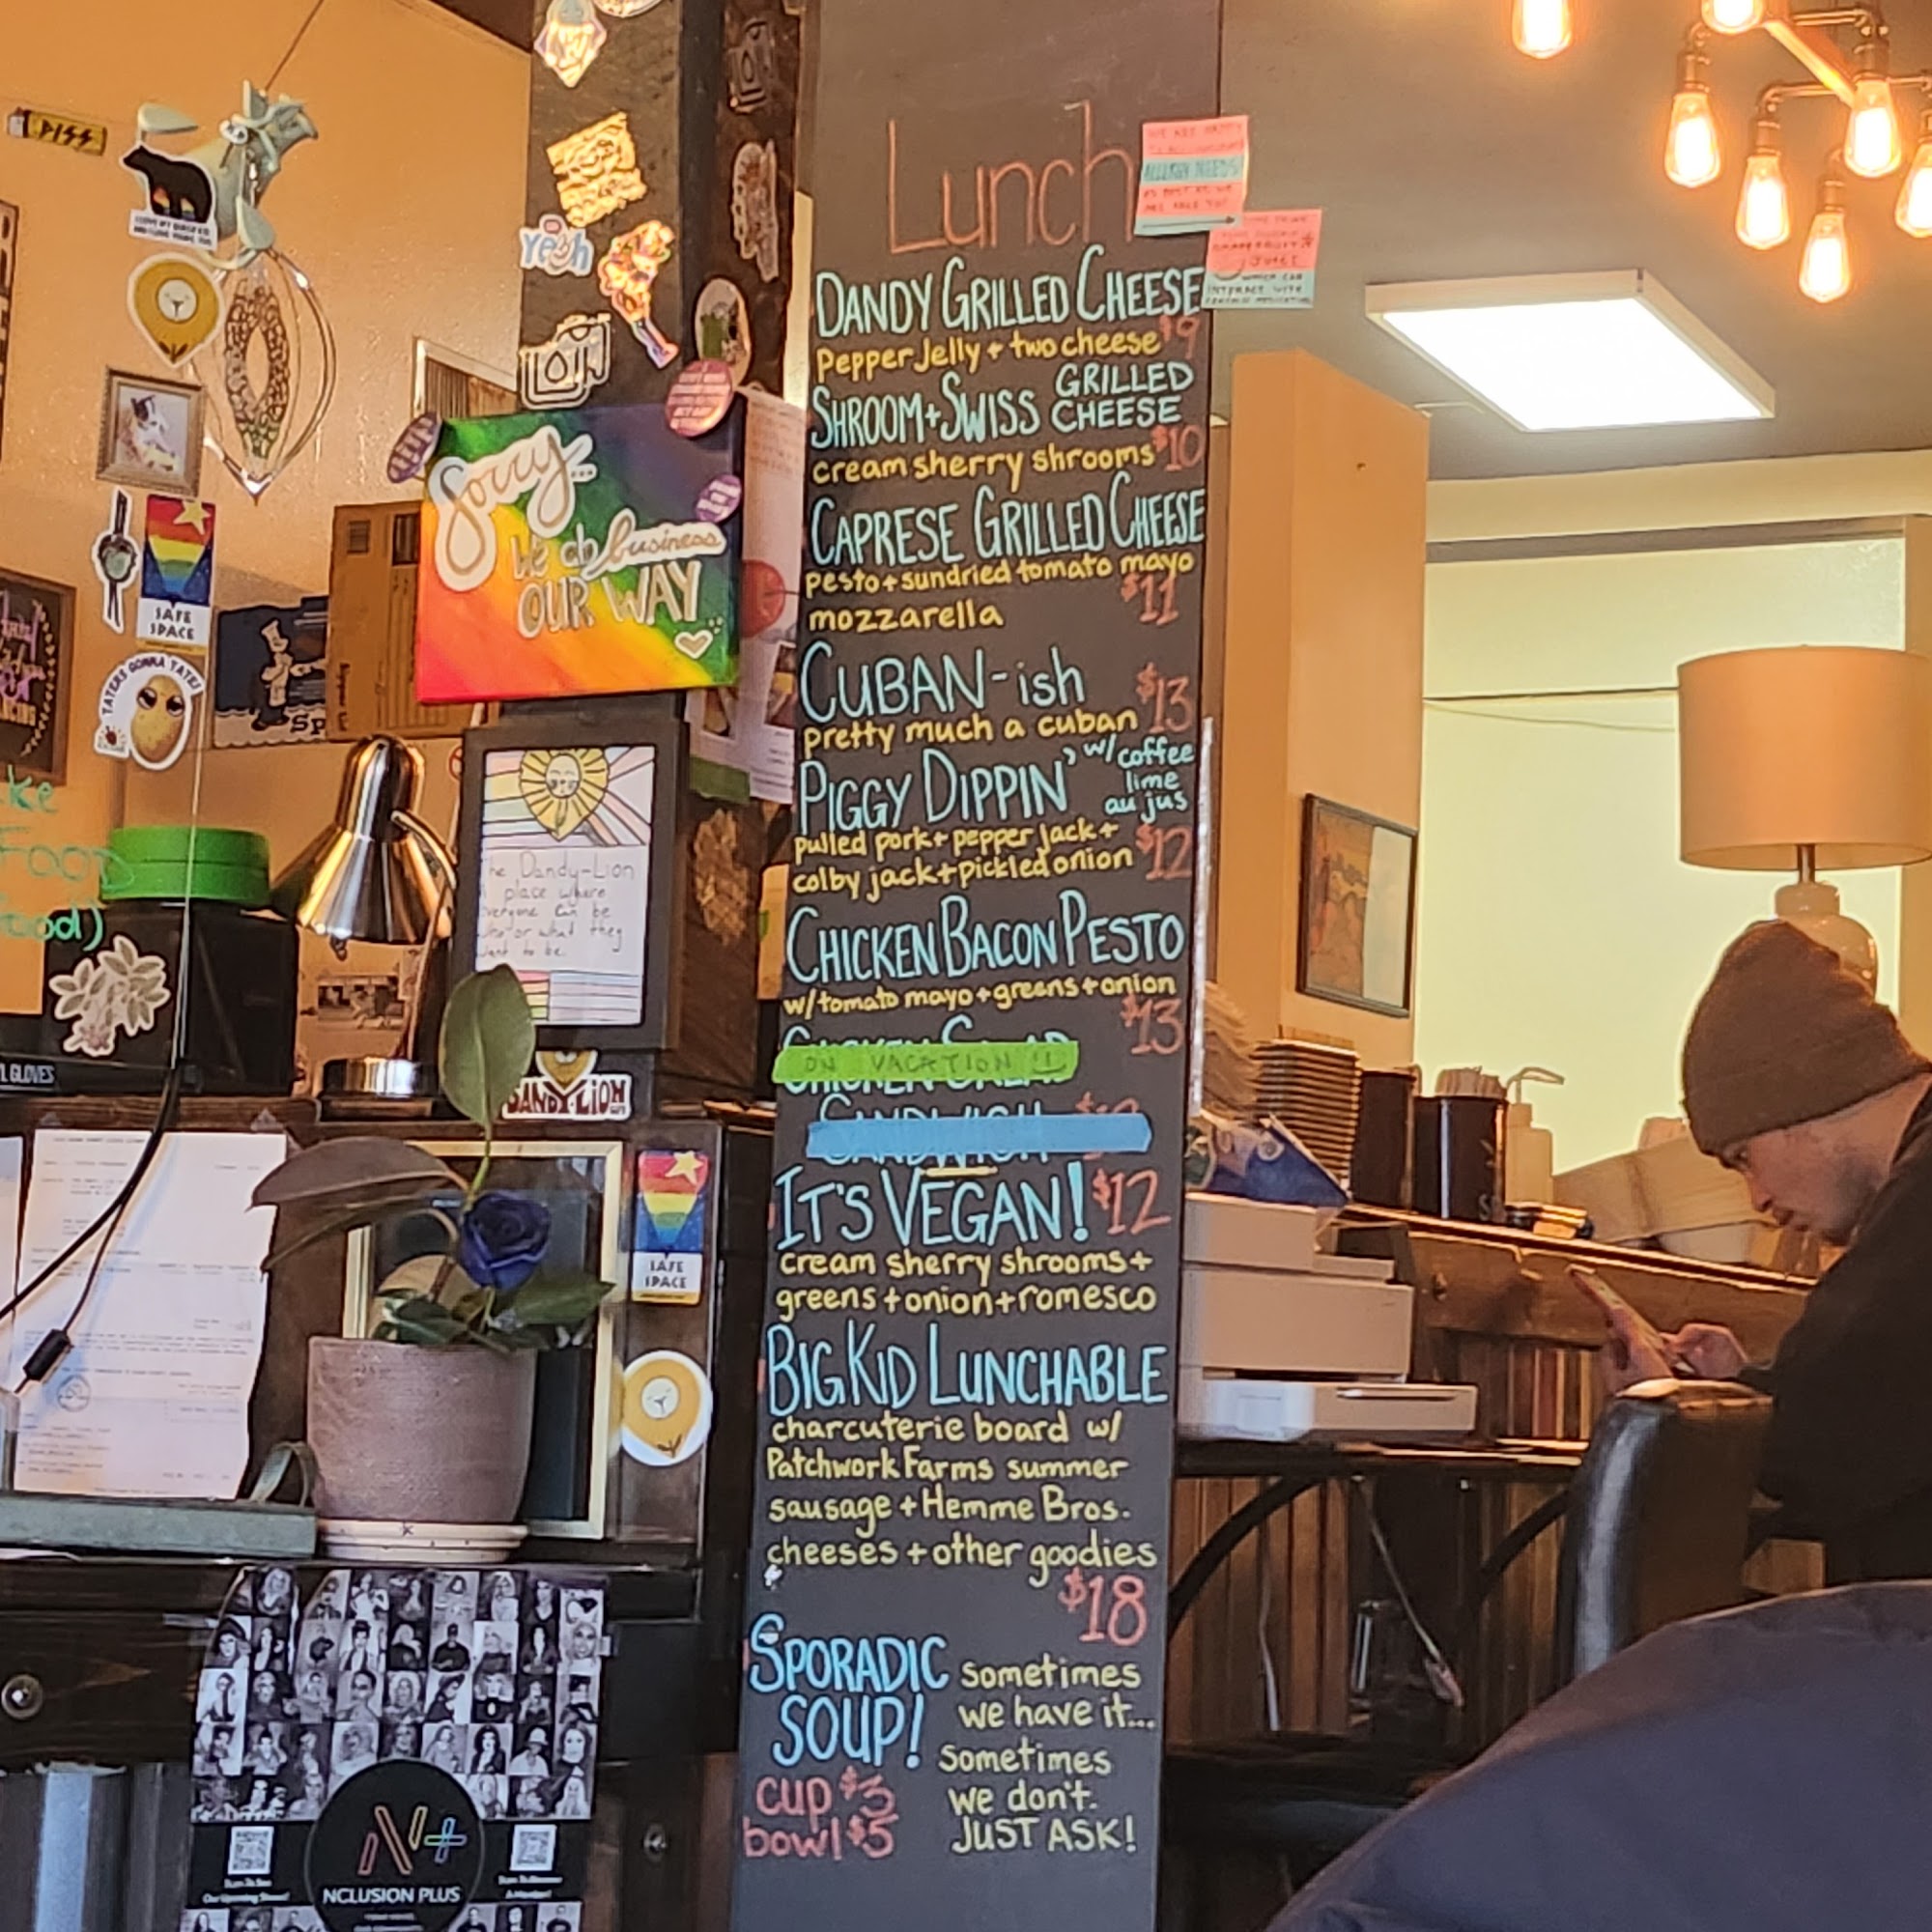 Lunch
ALLERGY NEEDS
DANDY GRILLED CHEESE
pepper jelly + two cheese $9
SHROOM + SWISS GRILLED CHEESE
cream sherry shrooms $10
CAPRESE GRILLED CHEESE
pesto + sundried tomato mayo
mozzarella $11
CUBAN-ish $13
pretty much a cuban
PIGGY DIPPIN' w/ coffee
lime
au jus
pulled pork + pepper jack +
colby jack + pickled onion $12
CHICKEN BACON PESTO
w/ tomato mayo + greens + onion
$13
CHICKEN SALAD
ON VACATION
SANDWICH
IT'S VEGAN! $12
cream sherry shrooms +
greens + onion + romesco
BIG KID LUNCHABLE
charcuterie board w/
Patchwork Farms summer
sausage + Hemme Bros.
cheeses + other goodies
$18
SPORADIC
SOUP!
cup $3
bowl $5
sometimes
we have it...
sometimes
we don't.
JUST ASK!
PISS
Yeah
Sorry...
We do business
OUR WAY
SAFE
SPACE
TATERS GONNA TATE!
Dandy-Lion
place where
can be
or what they
to be.
DANDY-LION
SAFE
SPACE
GLOVES
FOOD
N+
NCLUSION PLUS